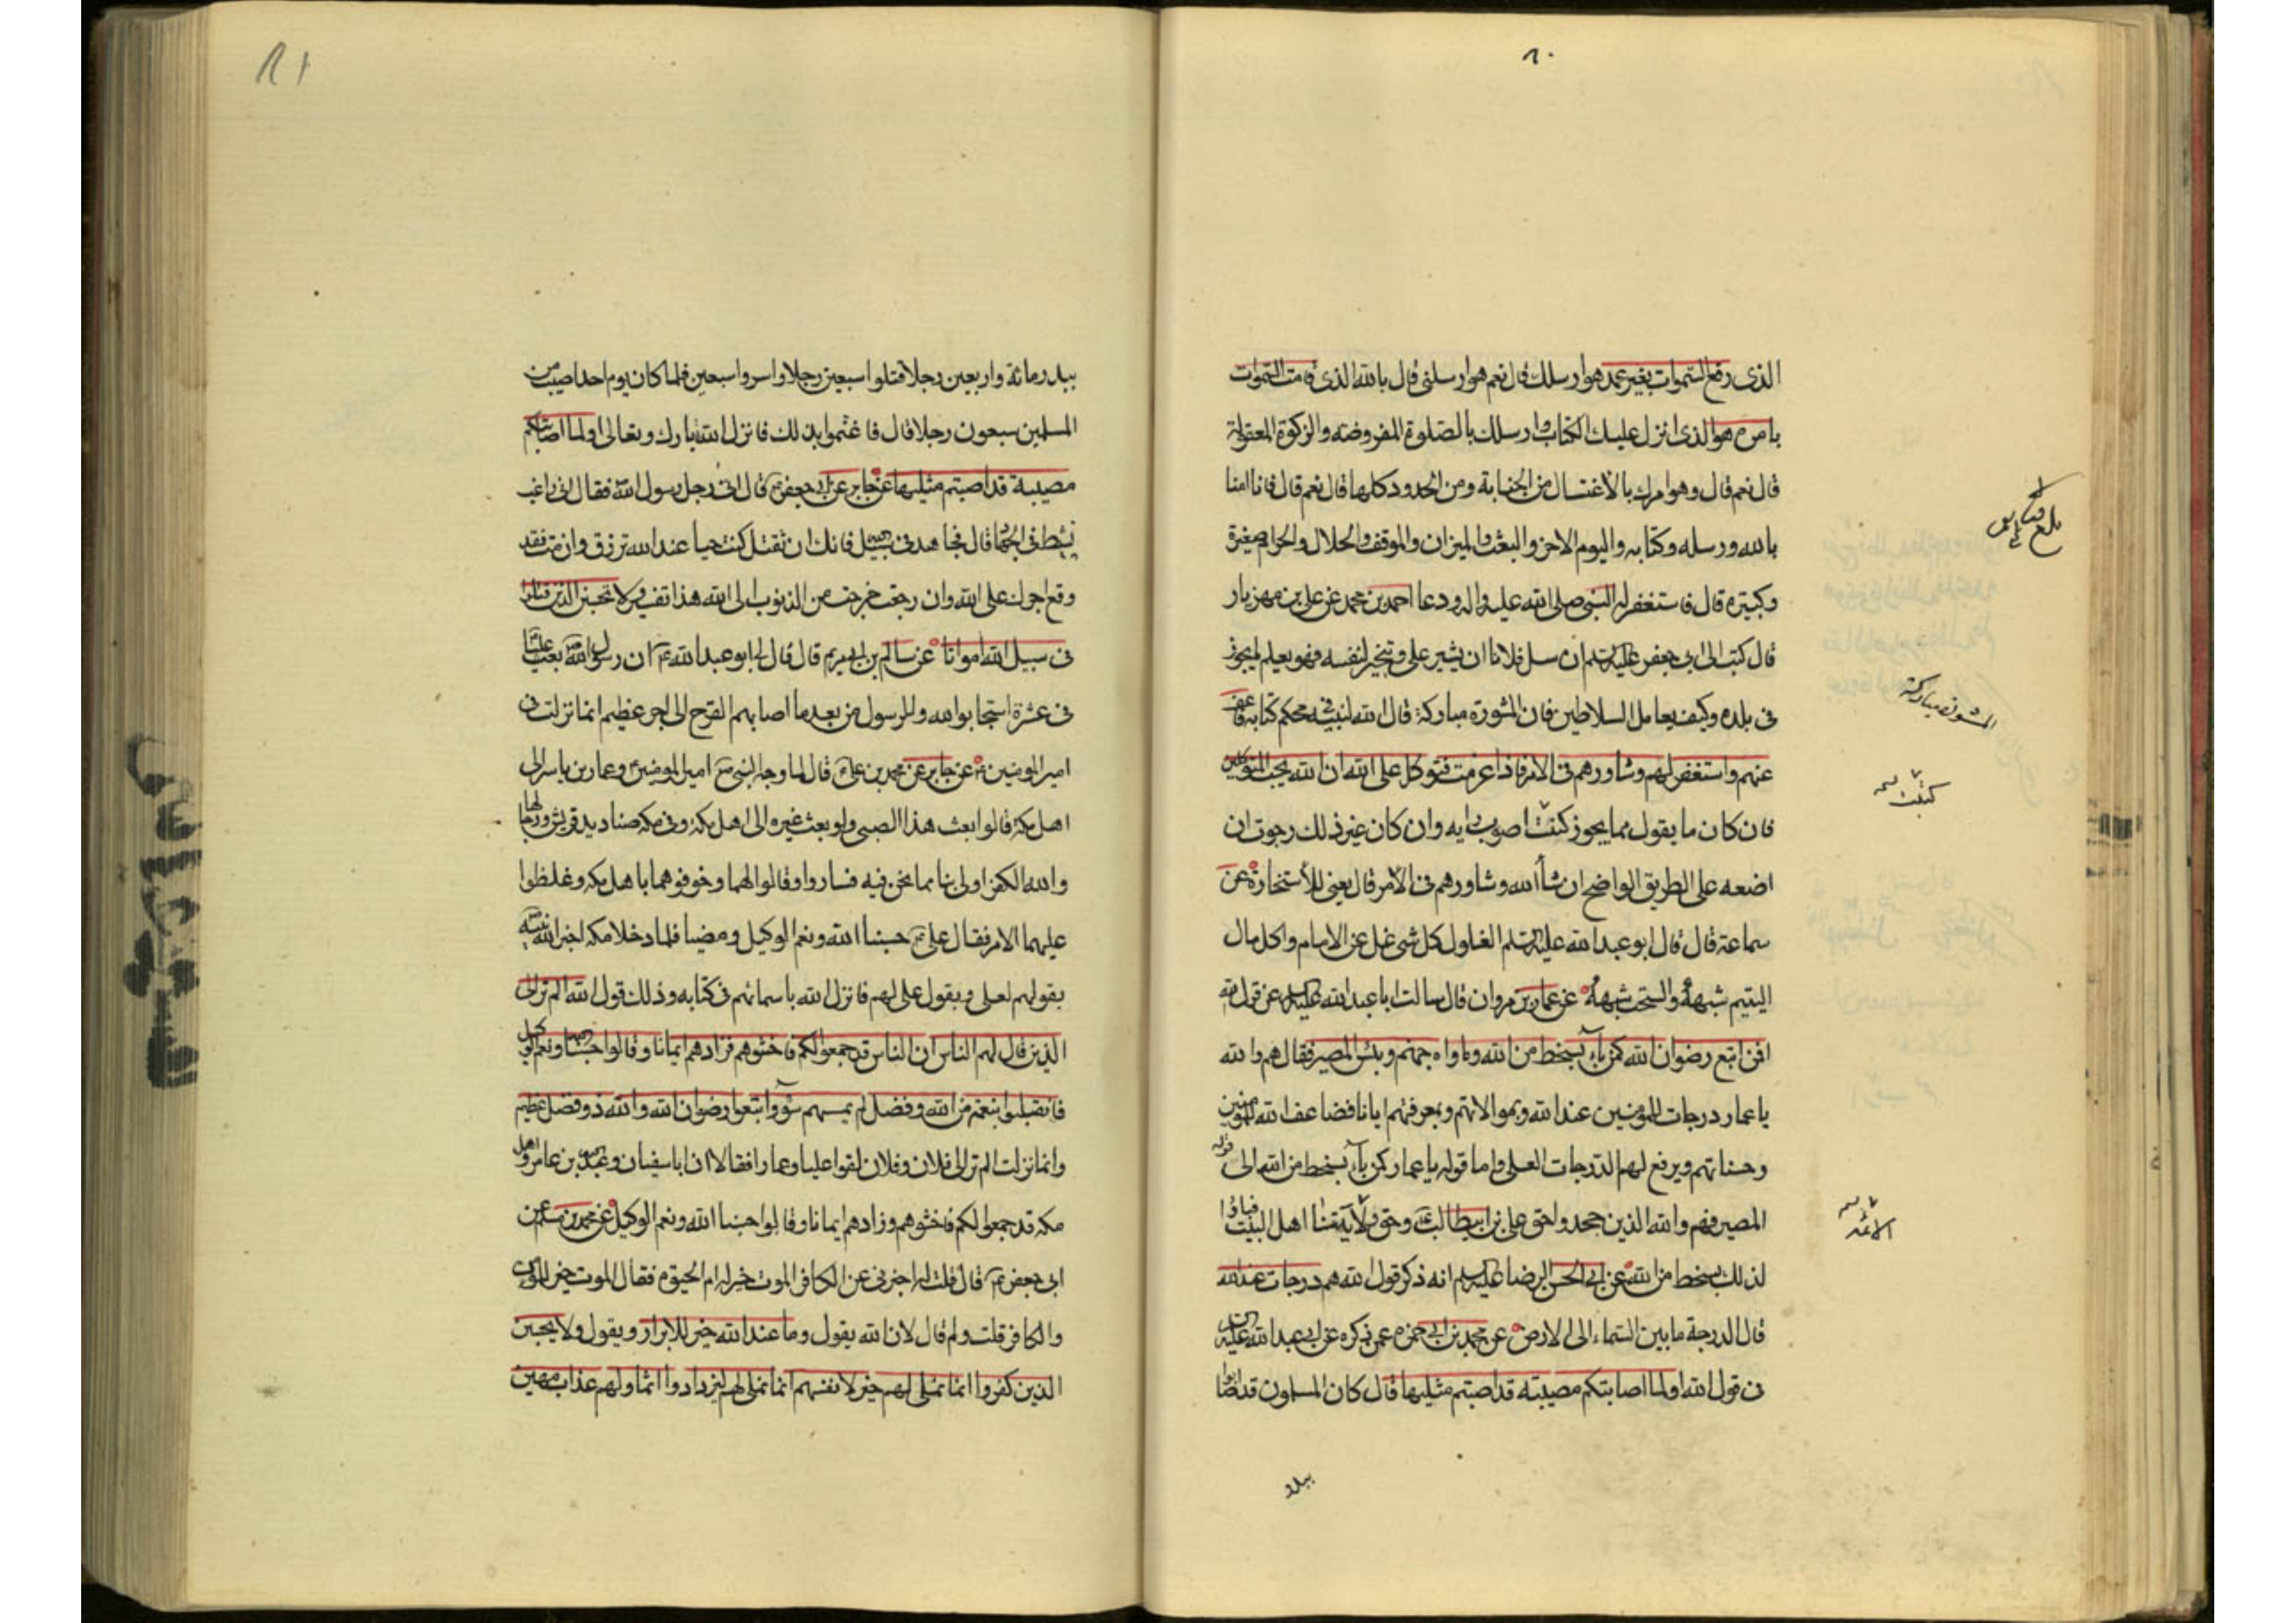 ٨٠
الذى رفع السموات بغير عمد هو ارسلك قال نعم هو ارسلنى قال بالله الذى قامت السموات
بامره هو الذى انزل عليك الكتاب وارسلك بالصلوة المفروضه والزكوة المعقولة
قال نعم قال وهو امرك بالاغتسال من الجنابة ومن الحدود كلها قال نعم قال فانا امنا
بالله ورسله وكتابه واليوم الاخر والبعث والميزان والموقف والحلال والحرام صغيرة
وكبيره قال فاستغفر له النبى صلى الله عليه واله ودعا احمد بن محمد عن على بن مهزيار
قال كتب الى ابى جعفر عليه السلم ان سل فلانا ان يشير على ويتخير لنفسه فهو يعلم ما يجوز
فى بلده وكيف يعامل السلاطين فان المشورة مباركة قال الله لنبيه فى محكم كتابه فاعف
عنهم واستغفر لهم وشاورهم فى الامر فاذا عزمت فتوكل على الله ان الله يحب المتوكلين
فان كان ما يقول مما يجوز كنت اصوب رايه وان كان غير ذلك رجوت ان
اضعه على الطريق الواضح ان شاء الله وشاورهم فى الامر قال يعنى الاستخارة عن
سماعة قال قال ابو عبدالله عليه السلم الغلول كل شى غل عن الامام واكل مال
اليتيم شبهة والسحت شبهة عن عمار بن مروان قال سالت ابا عبدالله عليه السلم عن قول الله
افمن اتبع رضوان الله كمن باء بسخط من الله وماواه جهنم وبئس المصير فقال هم والله
يا عمار درجات للمؤمنين عند الله وبموالاتهم وبمعرفتهم ايانا فيضاعف الله للمؤمنين
وحسناتهم ويرفع لهم الدرجات العلى واما قوله يا عمار كمن باء بسخط من الله الى قوله
المصير فهم والله الذين جحدوا حق على بن ابيطالب وحق ولاية منا اهل البيت فباؤا
لذلك بسخط من الله عن ابى الحسن الرضا عليه السلم انه ذكر قول الله هم درجات عند الله
قال الدرجة ما بين السماء الى الارض عن محمد بن ابى حمزه عمن ذكره عن ابى عبدالله عليه السلم
فى قول الله اولما اصابتكم مصيبته قد اصبتم مثليها قال كان المسلمون قد اصابوا
ببدر
بلغ
المشورة مباركة
كتبت
الائمة
٨١
ببدر مائة واربعين رجلا قتلوا سبعين رجلا واسروا سبعين فلما كان يوم احد اصيب من
المسلمين سبعون رجلا قال فاغتموا بذلك فانزل الله تبارك وتعالى اولما اصابتكم
مصيبة قد اصبتم مثليها عن جابر عن ابى جعفر قال اتى رجل رسول الله فقال انى راغب
نشط فى الجهاد قال فجاهد فى سبيل الله فانك ان تقتل كنت حيا عند الله ترزق وان مت فقد
وقع اجرك على الله وان رجعت خرجت من الذنوب الى الله هذا تفسير ولا تحسبن الذين قتلوا
فى سبيل الله امواتا عن سالم بن ابى مريم قال قال لى ابو عبدالله ان رسول الله بعث عليا
فى عشرة استجابوا لله وللرسول من بعد ما اصابهم القرح الى اجر عظيم انما نزلت فى
امير المومنين عن جابر عن محمد بن على قال لما وجه النبى امير المومنين وعمار بن ياسر الى
اهل مكة قالوا بعث هذا الصبى ولو بعث غيره الى اهل مكة وفى مكه صناديد قريش ورجالها
والله الكفر اولى بنا مما نحن فيه فساروا وقالوا لهما وخوفوهما باهل مكه وغلظوا
عليهما الامر فقال على حسبنا الله ونعم الوكيل ومضيا فلما دخلا مكه اخبر الله نبيه
بقولهم لعلى وبقول على لهم فانزل الله باسمائهم فى كتابه وذلك قول الله الم تر الى
الذين قال لهم الناس ان الناس قد جمعوا لكم فاخشوهم فزادهم ايمانا وقالوا حسبنا الله ونعم الوكيل
فانقبلوا بنعمة من الله وفضل لم يمسسهم سوء واتبعوا رضوان الله والله ذو فضل عظيم
وانما نزلت الم تر الى فلان وفلان لقوا عليا وعمارا فقالا ان ابا سفيان وعبدالله بن عامر واهل
مكه قد جمعوا لكم فاخشوهم وزادهم ايمانا وقالوا حسبنا الله ونعم الوكيل عن محمد بن مسلم عن
ابى جعفر قال قلت له اخبرنى عن الكافر الموت خير له ام الحيوة فقال الموت خير للمؤمن
والكافر قلت ولم قال لان الله يقول وما عند الله خير للابرار ويقول ولا يحسبن
الذين كفروا انما نملى لهم خير لانفسهم انما نملى لهم ليزدادوا اثما ولهم عذاب مهين